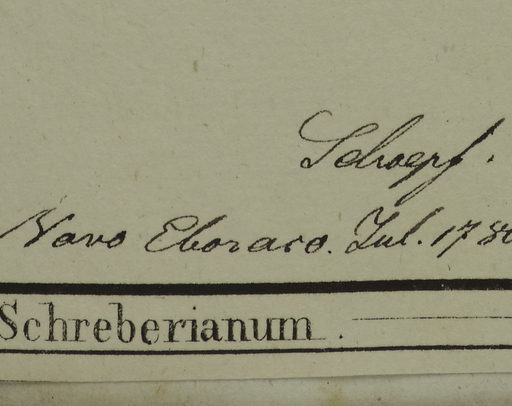 Schoepf.
Novo Eboraco. Jul. 178
Schreberianum.